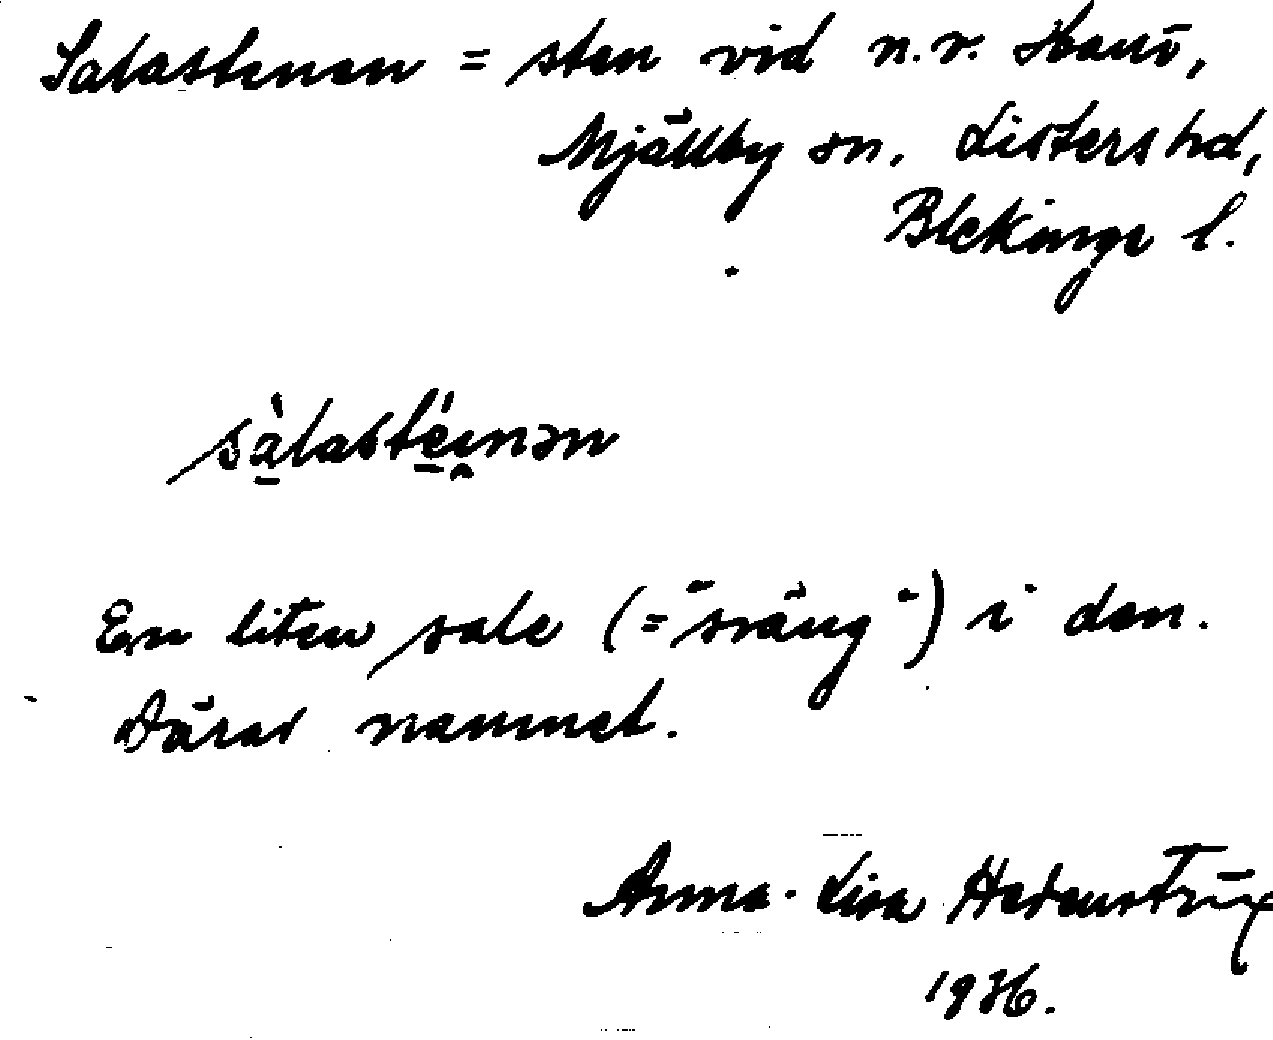 Salastenen = sten vid n.v. Hanö,
Mjällby sn. Listers hd,
Blekinge l.
sàlastéi̯nən
En liten sale (= "sväng") i den.
Därav namnet.
Anna-Lisa Hedenstrüx
1936.